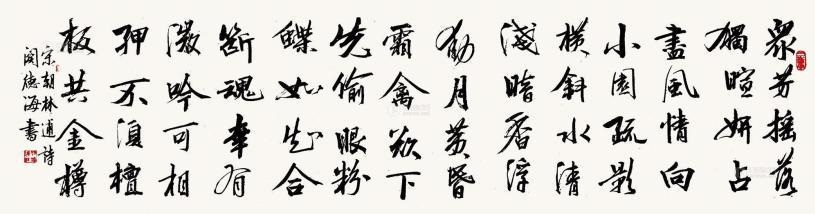 眾芳搖落
獨暄妍占
盡風情向
小園疏影
橫斜水清
淺暗香浮
動月黃昏
霜禽欲下
先偷眼粉
蝶如知合
斷魂幸有
微吟可相
狎不須檀
板共金樽
宋朝林逋詩
閻德海書